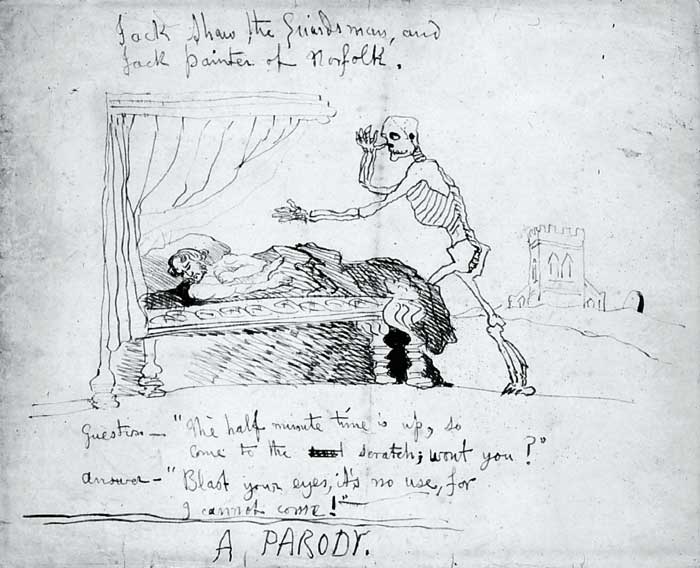 Jack Shaw the Guardsman, and
Jack Painter of Norfolk.
Question — "The half minute time is up, so
come to the scratch; wont you?"
Answer — "Blast your eyes, it's no use, for
I cannot come!"
A PARODY.